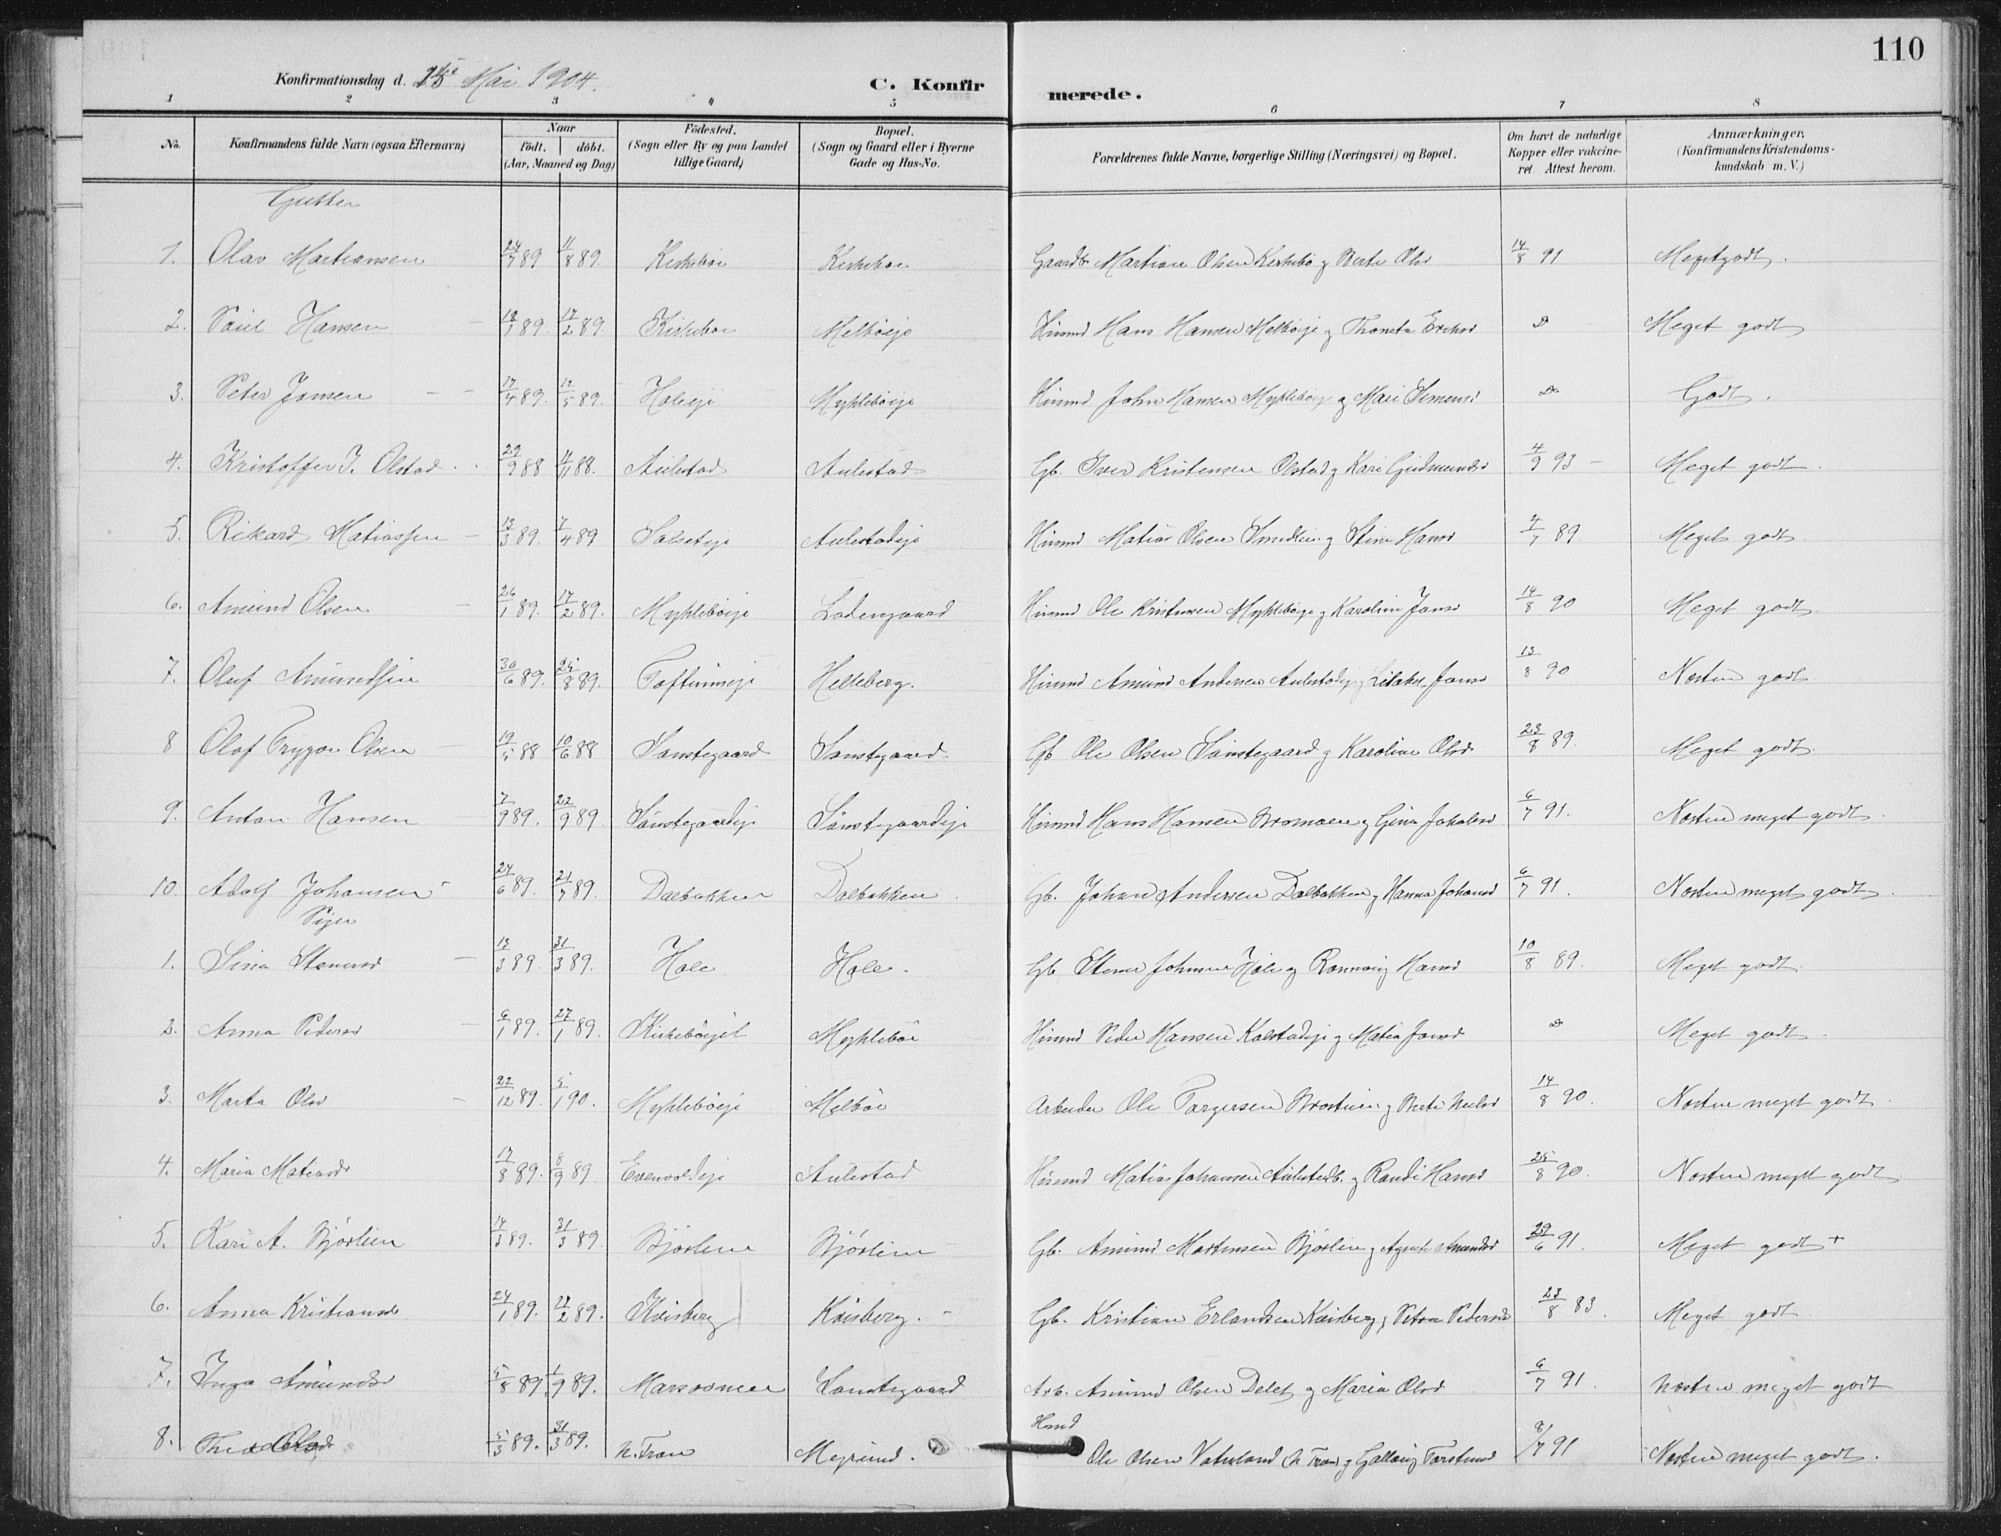 110
Konfirmationsdag d. 15de Mai 1904.
C. Konfirmerede.
1 2 3 4 5 6 7 8
No. Konfirmandens fulde Navn (ogsaa Efternavn) Naar födt. döbt. (Aar, Maaned og Dag) Födested. (Sogn eller By og paa Landet tillige Gaard) Bopæl. (Sogn og Gaard eller i Byerne Gade og Hus-No. Forældrenes fulde Navne, borgerlige Stilling (Næringsvei) og Bopæl. Om havt de naturlige Kopper eller vakcineret. Attest herom. Anmærkninger, (Konfirmandens Kristendomskundskab m. V.)
Gutter
1. Olav Martiansen 24/7 89 11/8 89. Kirkeboe Kirkeboe Gaardb. Martian Olsen Kirkebö g Berte Olsd 14/8 91 Meget godt.
2. Paul Hansen 18/1 89. 17/2 89. Kirkeboe Melböeje Husmd Hans Hansen Melböeje g Thonette Ericksd Do Meget godt
3. Peter Jonsen 17/4 89. 12/5 89. Holeeje Mykleböeje Husmd John Hansen Mykleböeje g Mari Simensd Do Godt.
4. Kristoffer I. Olstad. 29/9 88 4/11 88. Aulestad Aulestad Gb. Iver Kristensen Olstad g Kari Gudmundsd 4/9 93 Meget godt.
5. Rikard Matiassen 13/3 89. 7/4 89 Aulestadeje Husmd Matias Olsen Smedlien g Stine Hansd 4/7 89 Meget godt.
6. Amund Olsen 26/1 89. 17/2 89. Mykleböeje Ladengaard Husmd Ole Kristensen Mykleböeje g Karoline Jonsd 14/8 90 Meget godt.
7. Oluf Amundsen 30/6 89. 25/8 89. Toftumseje Helleberg. Husmd Amund Andersen Aulestadeje g Jonsd 13/8 90 Nesten godt
8 Olaf Trygve Olsen 19/5 88 10/6 88 Sönstegaard Sönstegaard Gb Ole Olsen Sönstegaard g Karoline Olsd 23/8 89. Meget godt.
9. Anton Hansen 7/9 89. 22/9 89. Sönstegaardeje Sönstegaardeje Husmd Hans Hansen Bromoen g Gina Jakobsd 6/7 91. Nesten meget godt.
10. Adolf Johansen 24/6 89. 21/7 89. Dalbakken Dalbakken. Gb. Johan Andersen Dalbakken g Hanna Johansd 6/7 91. Nesten meget godt.
Piger
1. Sina Stenersd 13/3 89. 31/3 89. Hole Hole. Gb. Stener Johnsen Hole g Rönnaug Hansd 10/8 89. Meget godt.
2. Anna Pedersd 6/1 89. 27/1 89. Kirkeböejet Mykleböe Husmd Peder Hansen Kalstadeje g Matea Jonsd Do Meget godt
3. Marta Olsd 22/12 89. 5/1 90. Mykleböeje Melböe Arbeider Ole Torgersen Brostuen g Berte Neelsd 14/8 90. Nesten meget godt.
4. Maria Matiasdr 17/8 89. 8/9 89 Evenvoldeje Aulestad Husmd Matias Johansen Aulestadb. g Randi Hansd 25/8 90. Nesten meget godt
5. Kari A. Björlien 14/3 89. 31/3 89. Björlien Björlien Gb. Amund Mortensen Björlien g Agnete Amundsd 29/6 91. Meget godt +
6. Anna Kristiansd 24/1 89. 17/2 89. Kvisberg Kvisberg. Gb. Kristian Erlandsen Kvisberg g Petra Pedersd 23/8 83. Meget godt
7. Inga Amundsd 5/8 89 1/9 89. Marsosmoen Sönstegaard Arb. Amund Olsen Delet g Maria Olsd 6/7 91. Nesten meget godt
8. Thea Olsd 5/3 89. 31/3 89. N. Fron Megrund. Hmd Ole Olsen Vaterland (N Fron) g Gallaug Torstensd 8/7 91 Nesten meget godt.